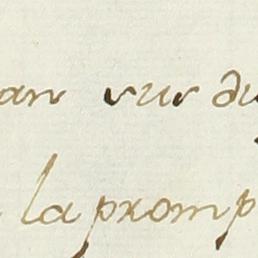 an vur du
la promp